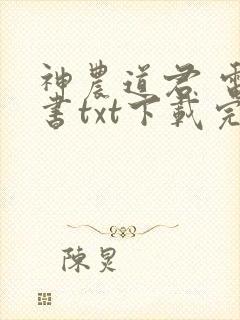 神農道君 電
書txt下載 完
陳炅